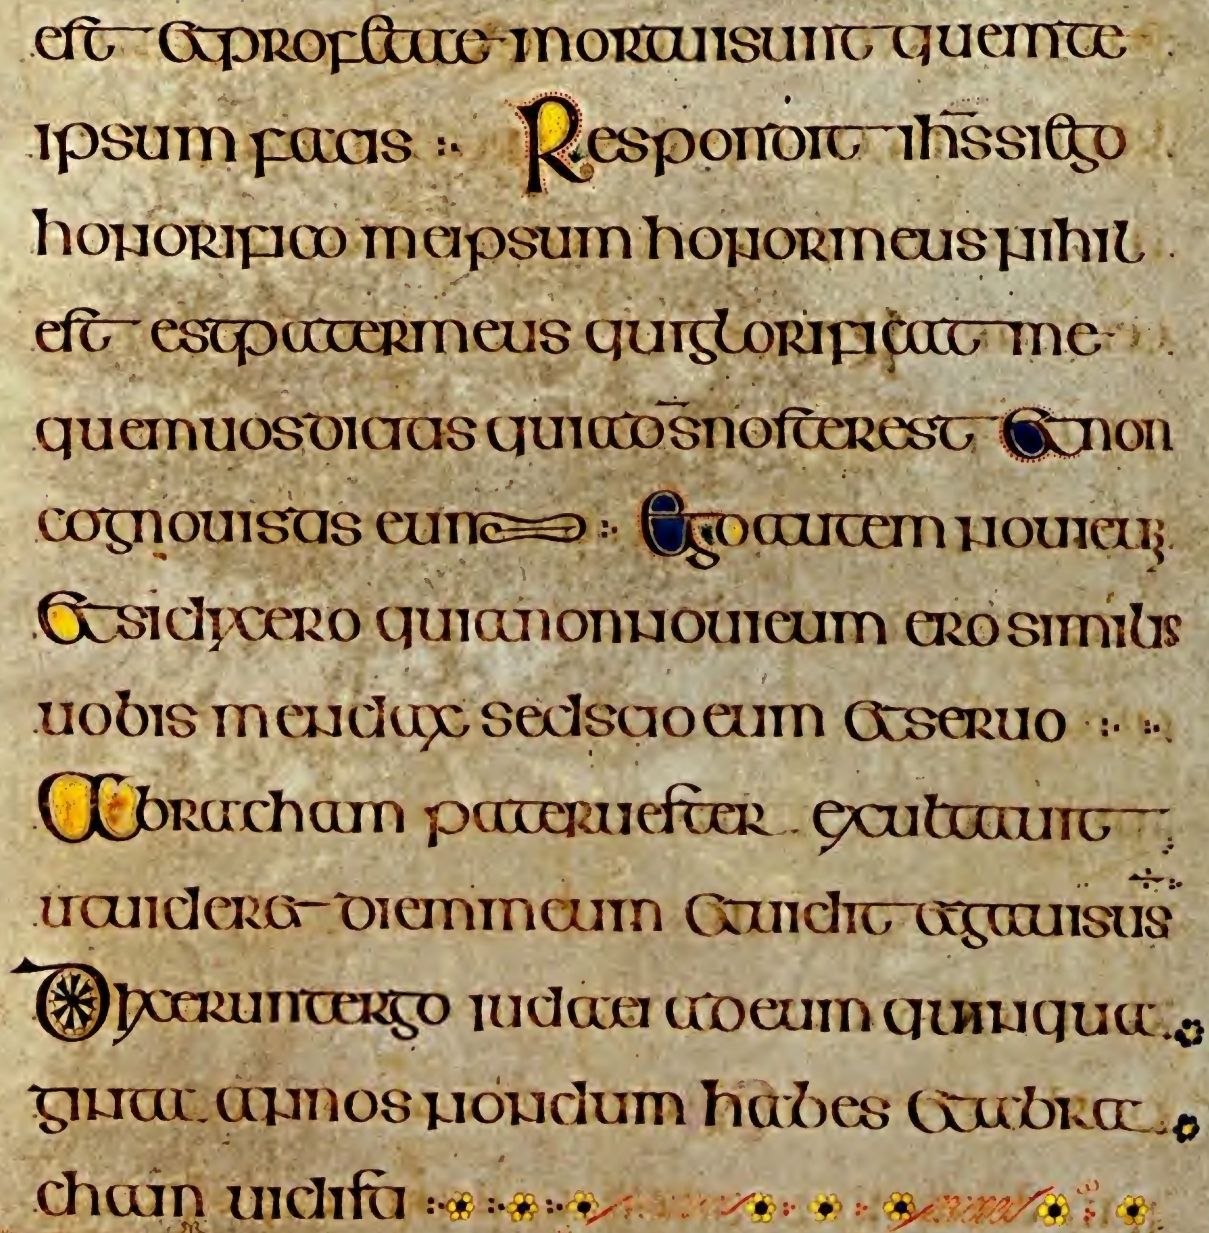 est et profetae mortui sunt quem te
ipsum facis Respondit ihs si ego
honorifico me ipsum honor meus nihil
est est pater meus qui glorificat me
quem uos dicitis quia ds noster est Et non
cognouistis eum Ego autem noui eum
Et si dixero quia non noui eum ero similis
uobis mendax sed scio eum et seruo
Abracham pater uester exultauit
ut uideret diem meum et uidit et gauisus
Dixerunt ergo iudaei ad eum quinqua
ginta annos nondum habes et abra
cham uidisti